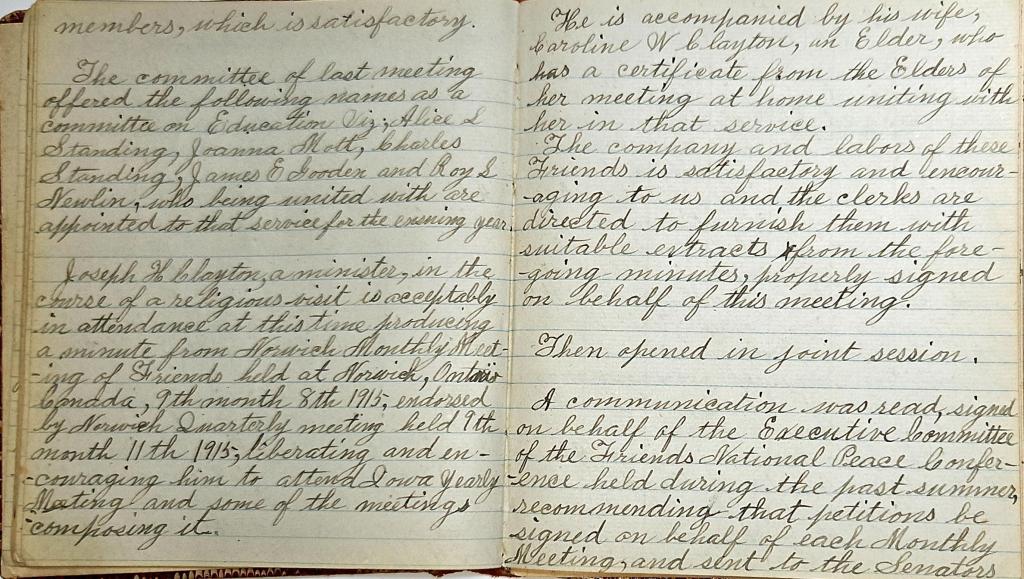 members, which is satisfactory.
The committee of last meeting
offered the following names as a
committee on Education Viz; Alice L
Standing, Joanna Mott, Charles
Standing, James E Gooden and Roy L
Newlin, who being united with are
appointed to that service for the ensuing year.
Joseph H Clayton, a minister, in the
course of a religious visit is acceptably
in attendance at this time producing
a minute from Norwich Monthly Meet-
-ing of Friends held at Norwich, Ontario
Canada, 9th month 8th 1915, endorsed
by Norwich Quarterly meeting held 9th
month 11th 1915, liberating and en-
-couraging him to attend Iowa Yearly
Meeting and some of the meetings
composing it.
He is accompanied by his wife,
Caroline W Clayton, an Elder, who
has a certificate from the Elders of
her meeting at home uniting with
her in that service.
The company and labors of these
Friends is satisfactory and encour-
-aging to us and the clerks are
directed to furnish them with
suitable extracts from the fore-
-going minutes, properly signed
on behalf of this meeting.
Then opened in joint session.
A communication was read, signed
on behalf of the Executive Committee
of the Friends National Peace Confer-
-ence held during the past summer,
recommending that petitions be
signed on behalf of each Monthly
Meeting, and sent to the Senators